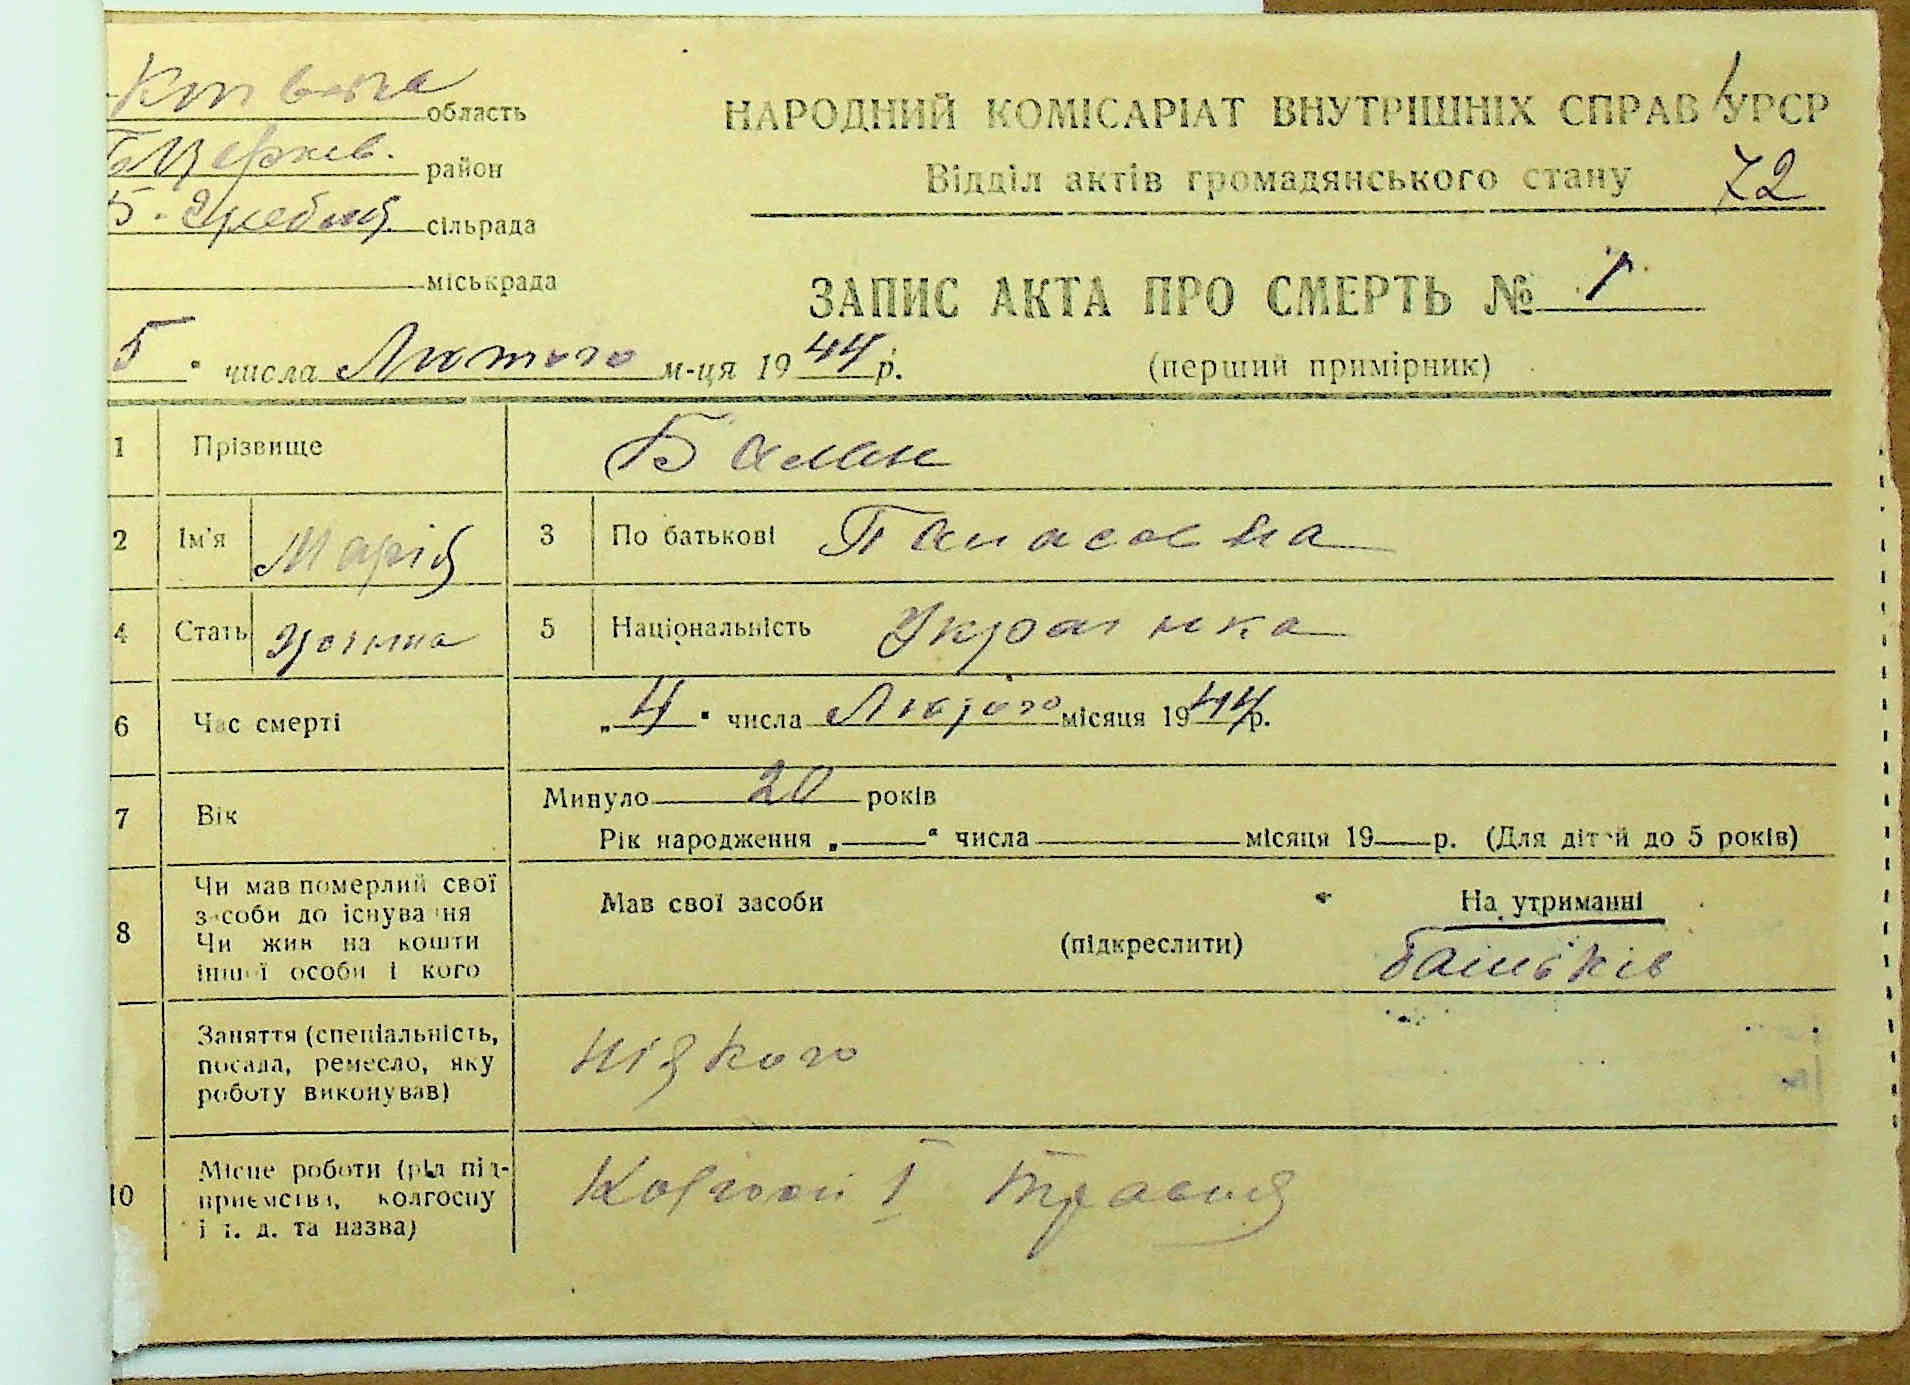 область
НАРОДНИЙ КОМІСАРІАТ ВНУТРІШНІХ СПРАВ УРСР
Б Церків. район
Відділ актів громадянського стану 72
сільрада
міськрада
ЗАПИС АКТА ПРО СМЕРТЬ № 1
5 " числа Лютого м-ця 1944 р.
(перший примірник)
1 Прізвище Балан
2 Ім'я Марія 3 По батькові Панасовна
4 Стать жіноча 5 Національність Українка
6 Час смерті „4" числа Лютого місяця 1944 р.
7 Вік Минуло 20 років
Рік народження „ " числа місяця 19 р. (Для дітей до 5 років)
8 Чи мав померлий свої засоби до існування
Чи жив на кошти іншої особи і кого
Мав свої засоби На утриманні
(підкреслити) батьків
Заняття (спеціальність,
посада, ремесло, яку
роботу виконував)
ніякого
10 Місце роботи (рід під-
приємства, колгоспу
і т. д. та назва)
Колгосп 1 Травня